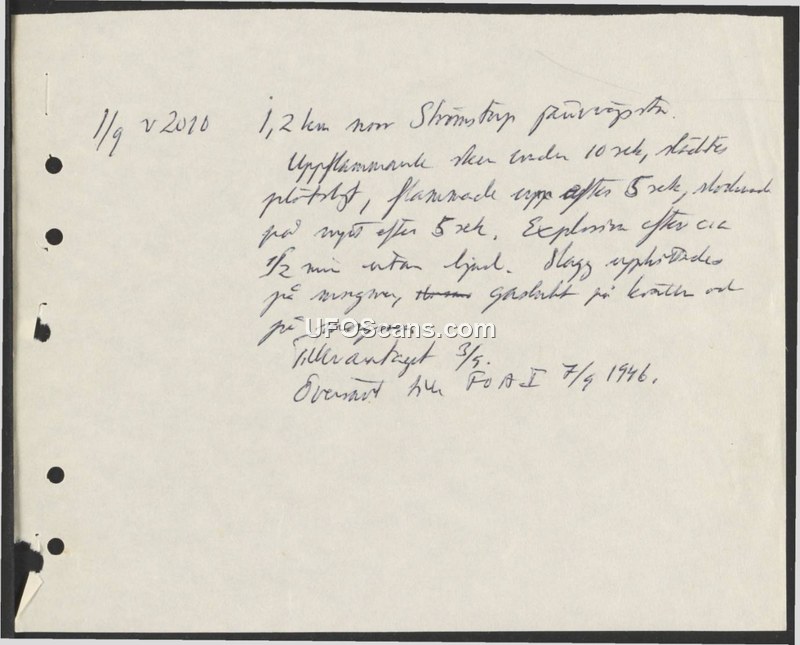 1/9 v 2010 1,2 km norr Strömstorp järnvägsstn.
Uppflammande sken under 10 sek, släcktes
plötsligt, flammade upp efter 5 sek, slocknade
på nytt efter 5 sek. Explosion efter ca
1/2 min utan ljud. Slagg upphittades
på morgonen, gaslukt på kvällen och
på
UFOScans.com
Tillvarataget 3/9.
Översänt till FOA I 7/9 1946.